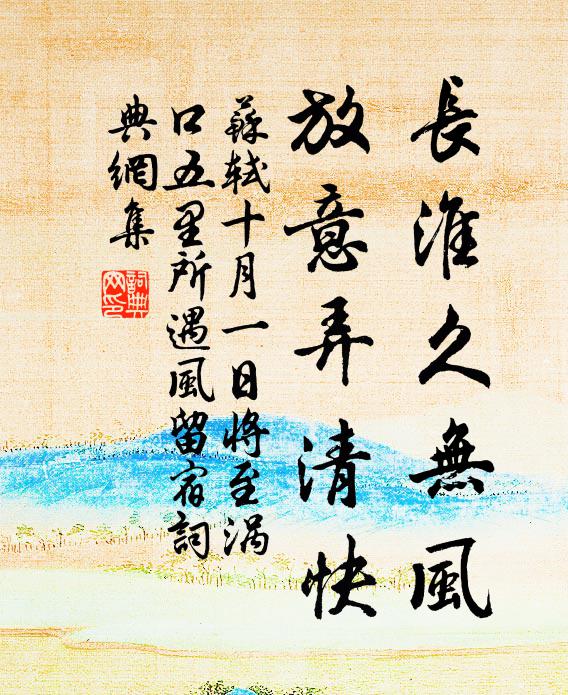 長淮久無風
放意弄清快
蘇軾十月一日將至渦
口五里所遇風留宿詞
典網集
詞典
网印